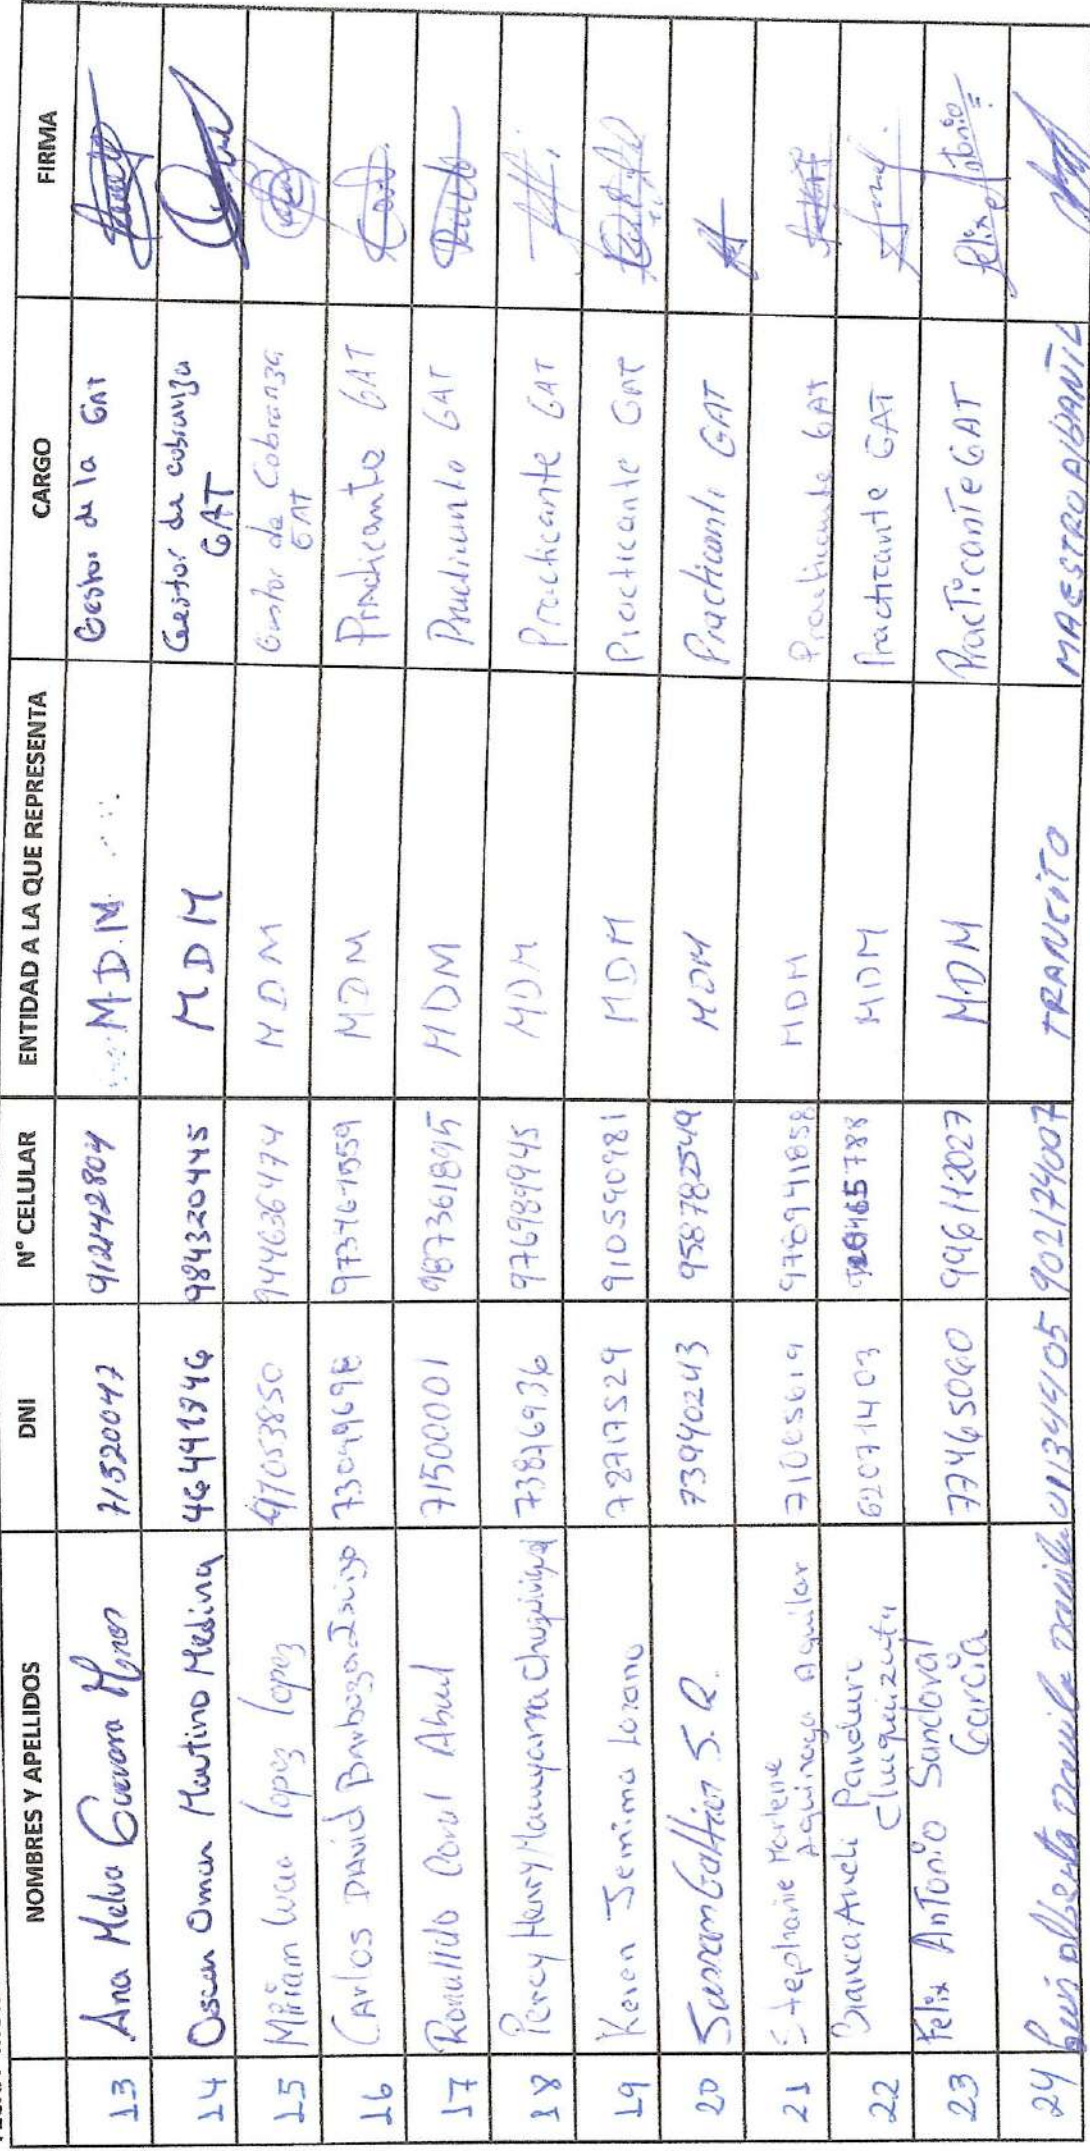 NOMBRES Y APELLIDOS DNI N° CELULAR ENTIDAD A LA QUE REPRESENTA CARGO FIRMA
13 Ana Melva Guevara 71520047 912142804 M.D.M. Gestor de la GAT
14 Oscar Omar Martino Medina 46441746 984320445 MDM Gestor de cobranza
GAT
15 Miriam Lucia Lopez Lopez 944636474 MDM Gestor de Cobranza
GAT
16 Carlos David Barbozan MDM Practicante GAT
17 71500001 987361895 MDM Practicante GAT
18 Percy Henry 73876936 976989945 MDM Practicante GAT
19 Keren Jemima Lozano 72717529 910590981 MDM Practicante GAT
20 S.R. 73940243 958782549 MDM Practicante GAT
21 Stephanie Marlene
Aquinaga Aguilar 976941858 MDM Practicante GAT
22 Bianca Areli Panduro
62071403 MDM Practicante GAT
23 Felix Antonio Sandoval
Garcia 77465060 996112027 MDM Practicante GAT Felix Antonio
24 Luis Alberto Davila Davila 01134405 902174007 TRANCITO MAESTRO ALBANIL